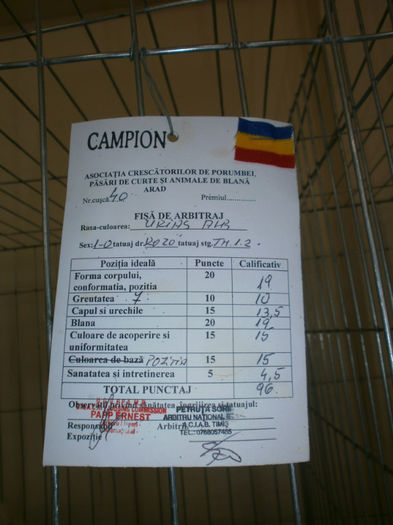 CAMPION
ASOCIAȚIA CRESCĂTORILOR DE PORUMBEI,
PĂSĂRI DE CURTE ȘI ANIMALE DE BLANĂ
ARAD
Nr.cușcă 40 Premiul..............
FIȘĂ DE ARBITRAJ
Rasa-culoarea: URIAȘ ALB
Sex: 1-0 tatuaj dr. RO20 tatuaj stg. TM 1.2
Poziția ideală Puncte Calificativ
Forma corpului, conformatia, poziția 20 19
Greutatea 7 10 10
Capul si urechile 15 13,5
Blana 20 19
Culoare de acoperire si uniformitatea 15 15
Culoarea de bază POZITIA 15 15
Sanatatea si intretinerea 5 4,5
TOTAL PUNCTAJ 96
Observații privind sanătatea, îngrijirea și tatuajul:
PAPP ERNEST
PETRUȚA SORIN
ARBITRU NATIONAL
A.C.I.A.B. TIMIȘ
TEL.: 0768057485
Responsabil Arbitru
Expoziție